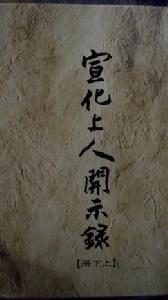 宣化上人開示錄
【上下冊】